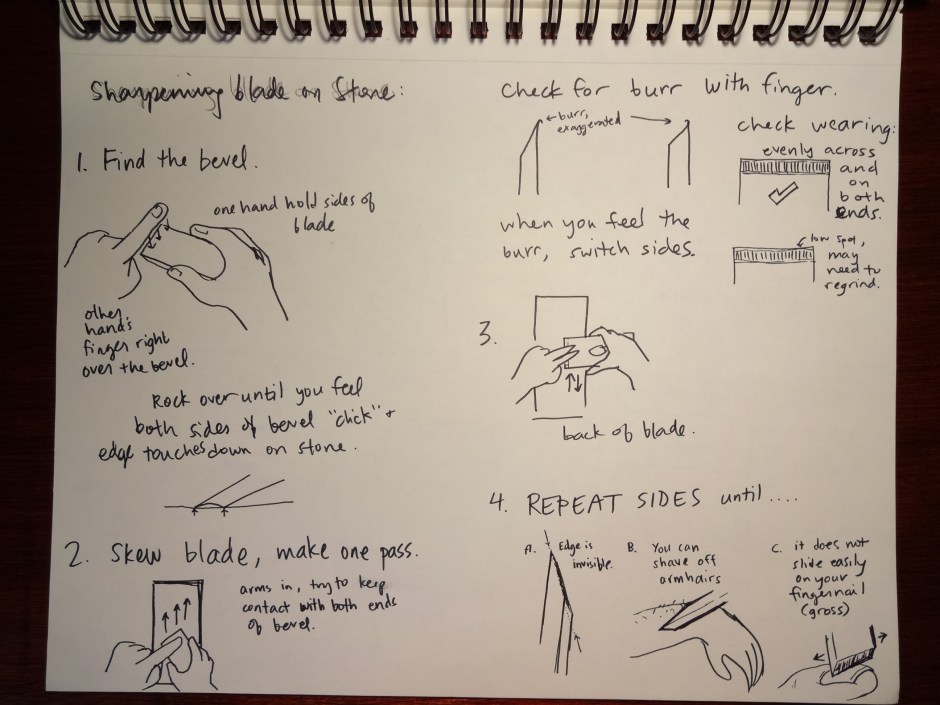 Sharpening blade on Stone:
1. Find the bevel.
one hand hold sides of
blade
other
hand's
finger right
over the bevel.
Rock over until you feel
both sides of bevel "click" +
edge touches down on stone.
2. Skew blade, make one pass.
arms in, try to keep
contact with both ends
of bevel.
Check for burr with finger.
burr,
exaggerated
when you feel the
burr, switch sides.
check wearing:
evenly across
and
on
both
ends.
low spot,
may
need to
regrind.
3.
back of blade.
4. REPEAT SIDES until....
A. Edge is
invisible.
B. You can
shave off
armhairs
C. it does not
slide easily
on your
fingernail
(gross)